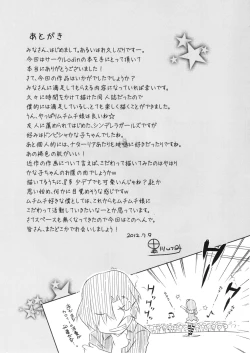 あとがき
みなさん、はじめまして。あるいはお久しぶりですー。
今回はサークルodinの本を手にとって頂いて
本当にありがとうございました!
さて、今回の作品はいかがでしたでしょうか?
みなさんに満足してもらえる内容になっていれば幸いです。
久々に時間をかけて描けた同人誌だったので
僕的には満足しているし、とても楽しく描くことができました。
さん。やっぱムチムチ娘は良いよね☆
友人に薦められてはじめた、シンデレラガールズですが
好みはドンピシャかな子ちゃんでしたね。
あと個人的には、ナターリアあたりも絶妙に好きだったりですね。
あの褐色の肌がいい!
近作の作画について言えば、こだわって描いてみたのはやはり
かな子ちゃんのお腹の肉でしょうかw
描いてるうちに、多少タプタプでも可愛いんじゃね?とか
思い始め、何かに目覚めそうな感じですw
ムチムチ好きな僕としては、これからもムチムチ娘に
こだわって活動していきたいなーとか思っています。
さてスペースも無くなってきたので今回はこのへんで。
皆さん、またどこかでお会いしましょう!
2012.1.9